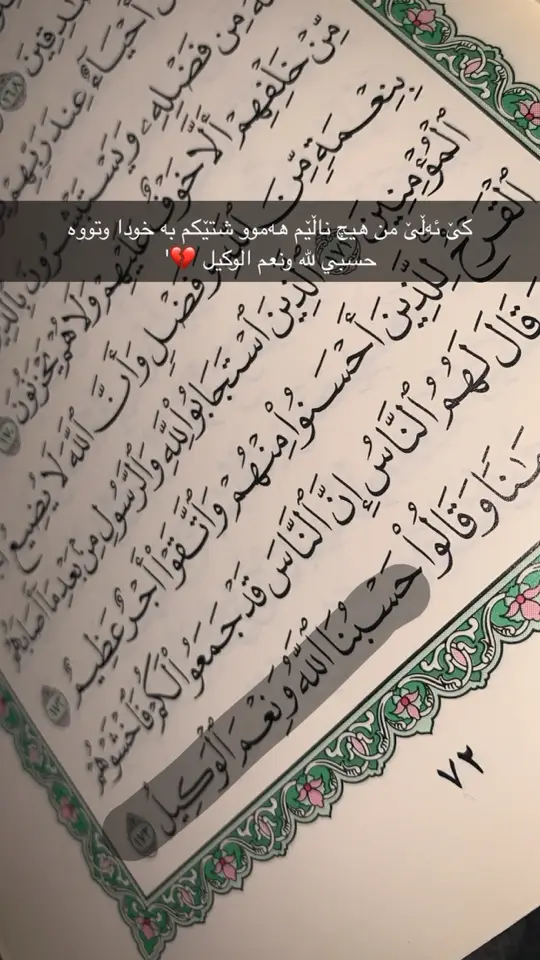 مِن فَضْلِهِۦ وَيَسْتَبْشِرُونَ بِٱلَّذِينَ
مِّنْ خَلْفِهِمْ أَلَّا خَوْفٌ عَلَيْهِمْ وَلَا هُمْ يَحْزَنُونَ ١٧٠
بِنِعْمَةٍ مِّنَ وَفَضْلٍ وَأَنَّ ٱللَّهَ لَا يُضِيعُ
ٱلْمُؤْمِنِينَ ٱلَّذِينَ ٱسْتَجَابُوا۟ لِلَّهِ وَٱلرَّسُولِ مِنۢ بَعْدِ مَآ أَصَابَهُمُ
ٱلْقَرْحُ لِلَّذِينَ أَحْسَنُوا۟ مِنْهُمْ وَٱتَّقَوْا۟ أَجْرٌ عَظِيمٌ ١٧٢
قَالَ لَهُمُ ٱلنَّاسُ إِنَّ ٱلنَّاسَ قَدْ جَمَعُوا۟ لَكُمْ فَٱخْشَوْهُمْ
وَقَالُوا۟ حَسْبُنَا ٱللَّهُ وَنِعْمَ ٱلْوَكِيلُ ١٧٣
٧٢
کێ ئەڵێ من هیچ ناڵێم هەموو شتێکم بە خودا وتووە
حسبي لله ونعم الوکیل 💔'